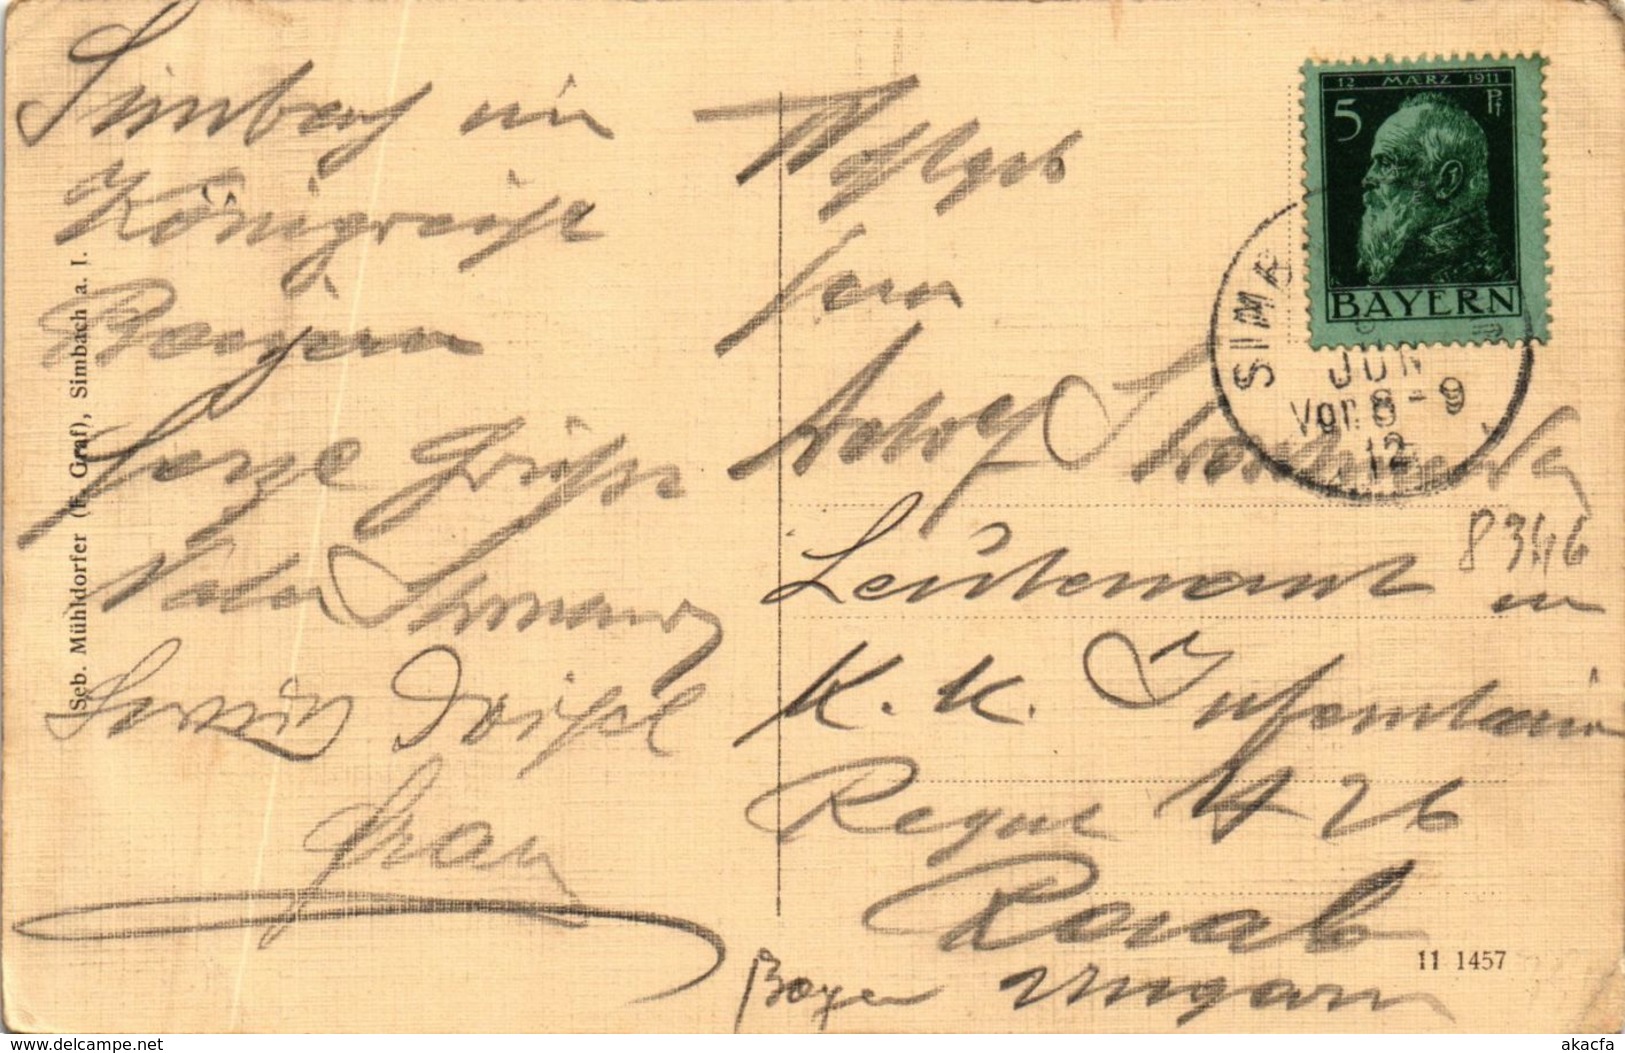 Simbach im
Königreich
Bayern
Herzl Grüße
Vater
Frau
Seb. Mühldorfer (F. Graf), Simbach a. I.
Wohlgeb
Herrn
Adolf
Leutenant im
K. K. Infanterie
Regmt № 26
Raab
Ungarn
Bayern
8346
12 MÆRZ 1911
5 Pf
BAYERN
SIMB
JUN
Vor. 8-9
12
11 1457
www.delcampe.net
akacfa